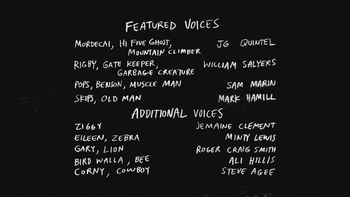 FEATURED VOICES
MORDECAI, HI FIVE GHOST, JG QUINTEL
MOUNTAIN CLIMBER
RIGBY, GATE KEEPER, WILLIAM SALYERS
GARBAGE CREATURE
POPS, BENSON, MUSCLE MAN SAM MARIN
SKIPS, OLD MAN MARK HAMILL
ADDITIONAL VOICES
ZIGGY JEMAINE CLEMENT
EILEEN, ZEBRA MINTY LEWIS
GARY, LION ROGER CRAIG SMITH
BIRD WALLA, BEE ALI HILLIS
CORNY, COWBOY STEVE AGEE